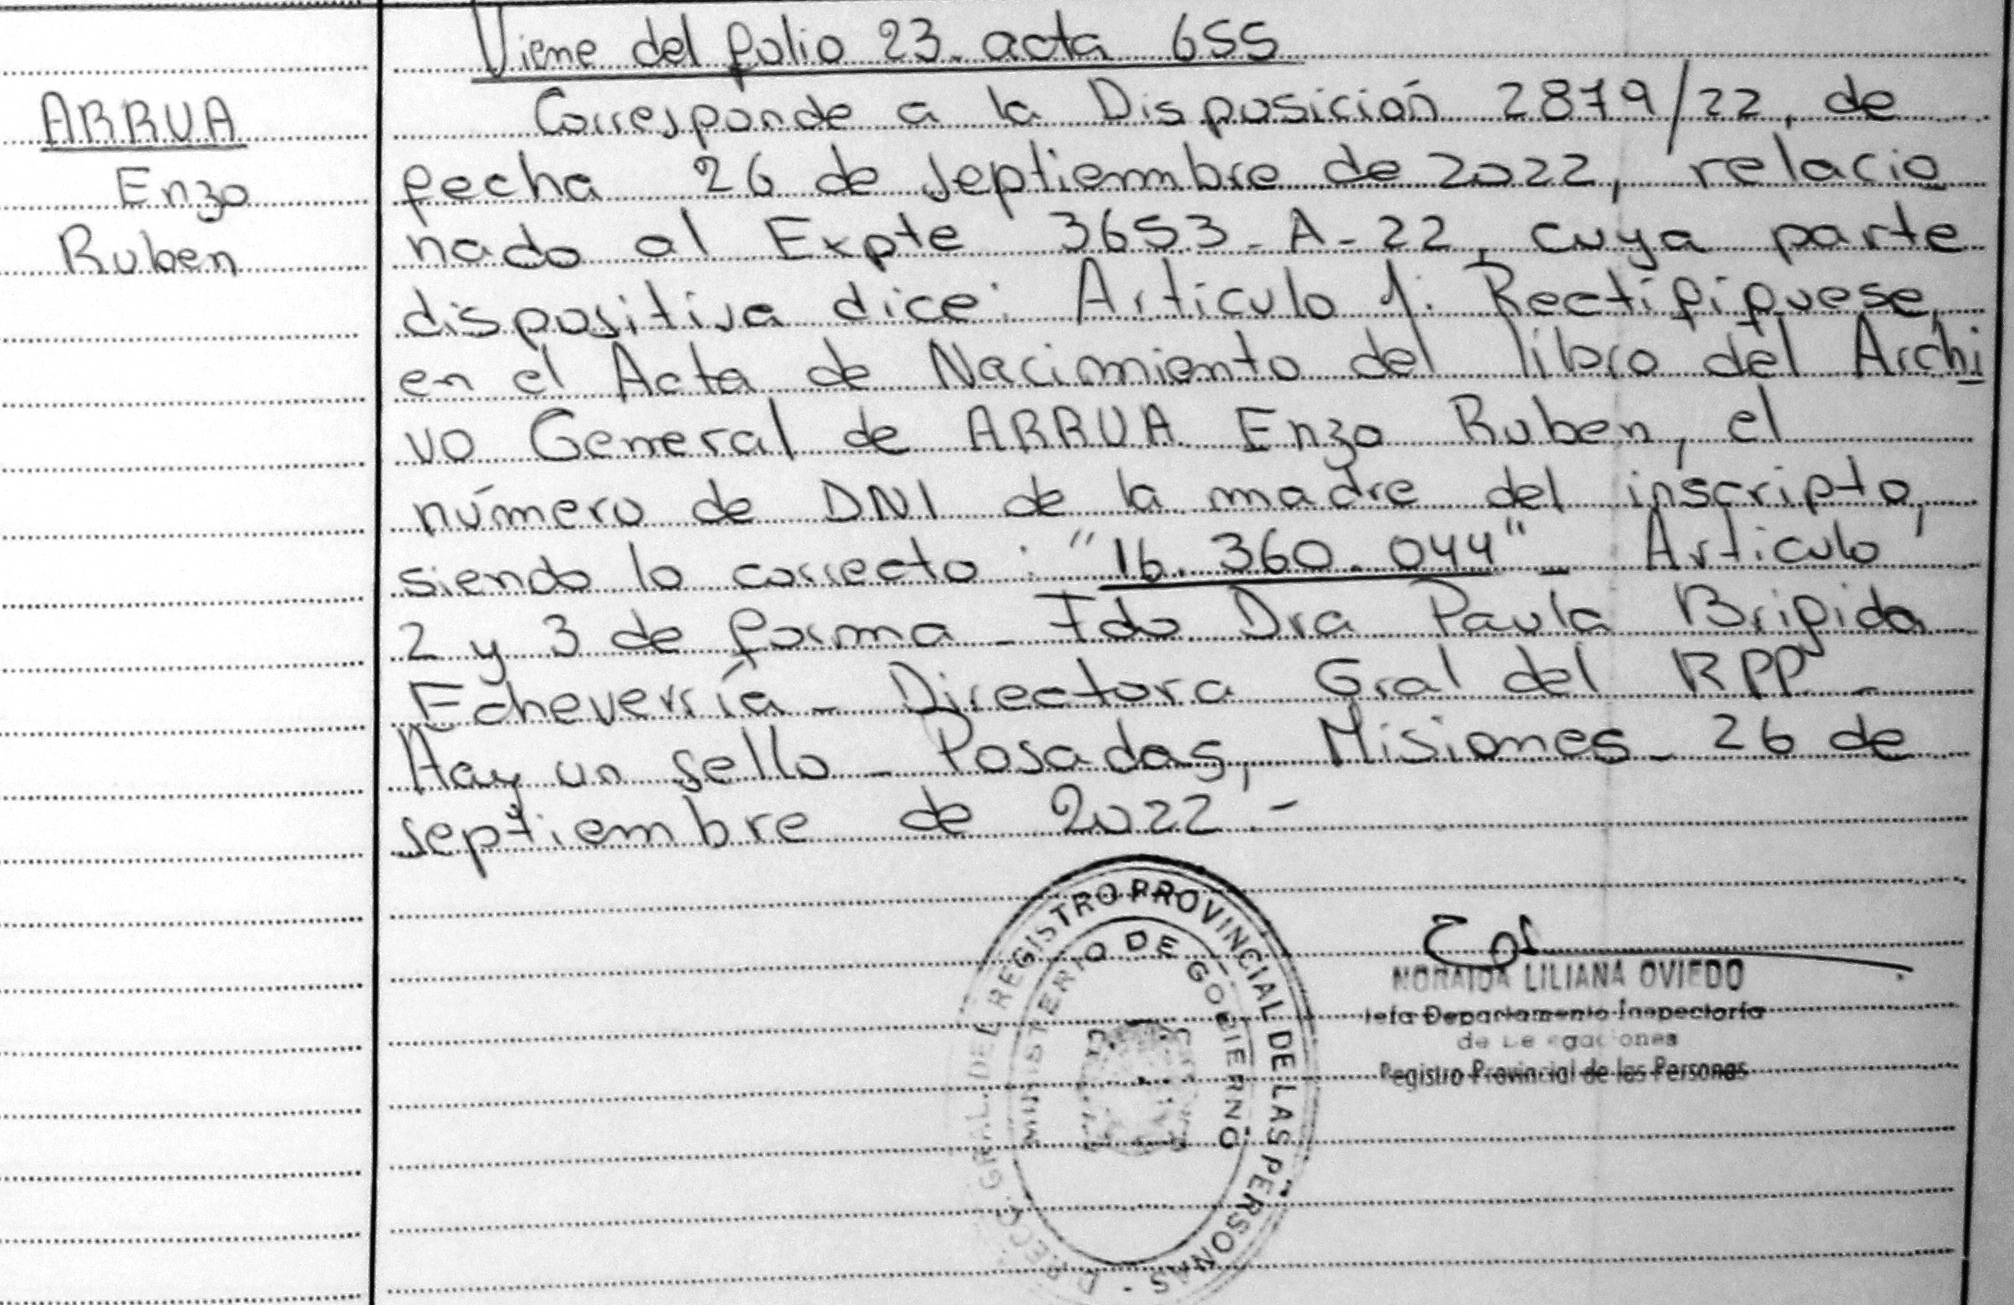 Viene del folio 23. acta 655
ARRUA
Enzo
Ruben
Corresponde a la Disposición 2879/22, de
fecha 26 de septiembre de 2022, relacio
nado al Expte 3653-A-22, cuya parte
dispositiva dice: Articulo 1: Rectifíquese,
en el Acta de Nacimiento del libro del Archi
vo General de ARRUA Enzo Ruben, el
número de DNI de la madre del inscripto,
siendo lo correcto: "16.360.044"- Articulo
2 y 3 de forma - Fdo Dra Paula Brigida
Echeverría - Directora Gral del RPP -
Hay un sello - Posadas, Misiones - 26 de
septiembre de 2022.-
DIRECC. GRAL. DEL REGISTRO PROVINCIAL DE LAS PERSONAS
MINISTERIO DE GOBIERNO
NORAIDA LILIANA OVIEDO
Jefa Departamento Inspectoría
de Delegaciones
Registro Provincial de las Personas